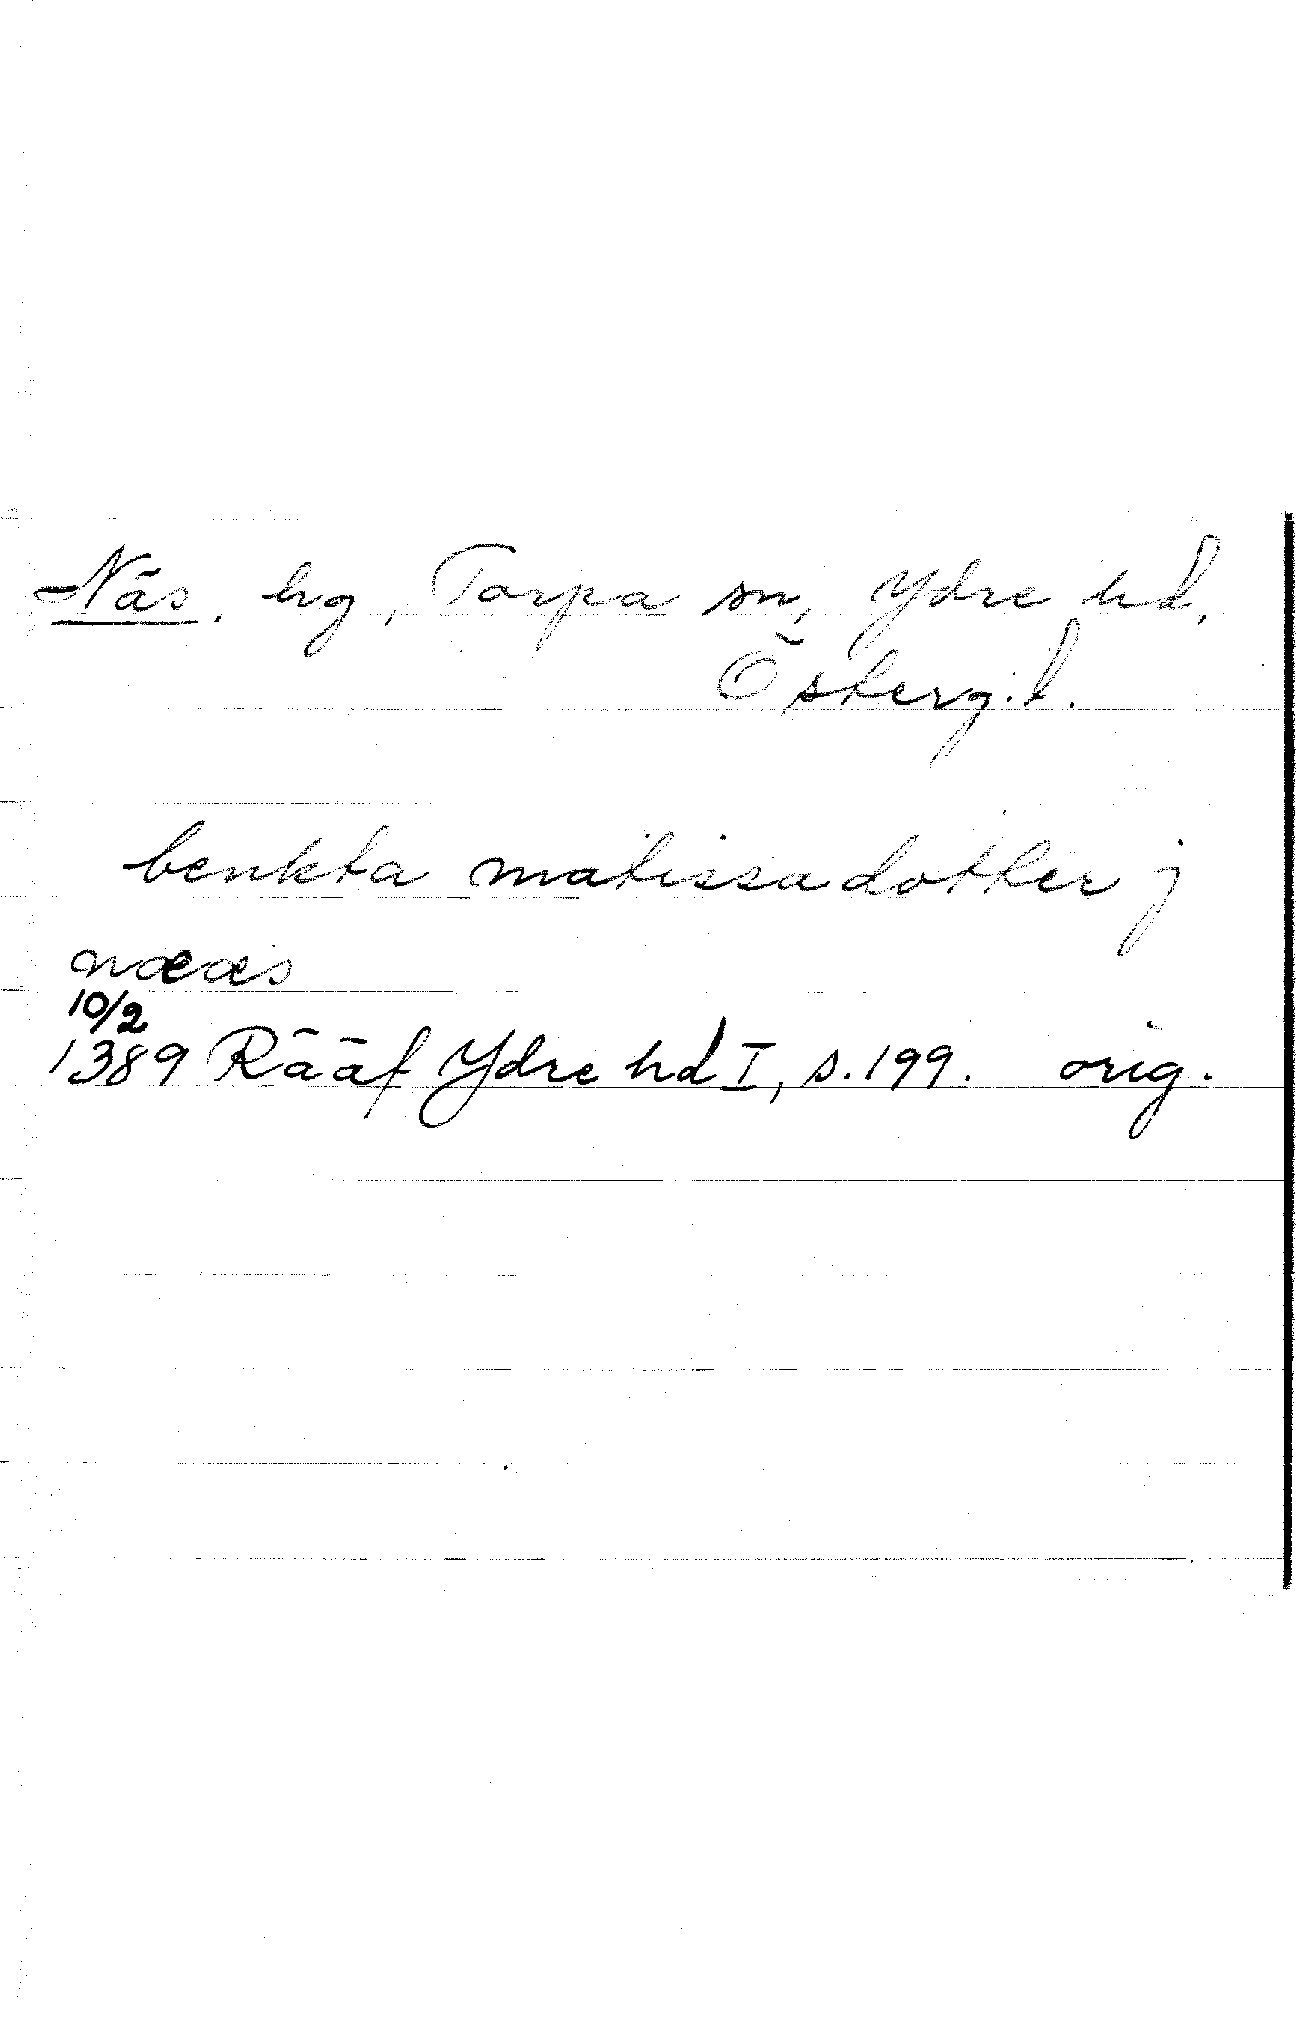 Näs, hg, Torpa sn, Ydre hd,
Österg.l.
benkta matissadotter j
næærs
10/2
1389 Rääf Ydre hd I, s.199. orig.